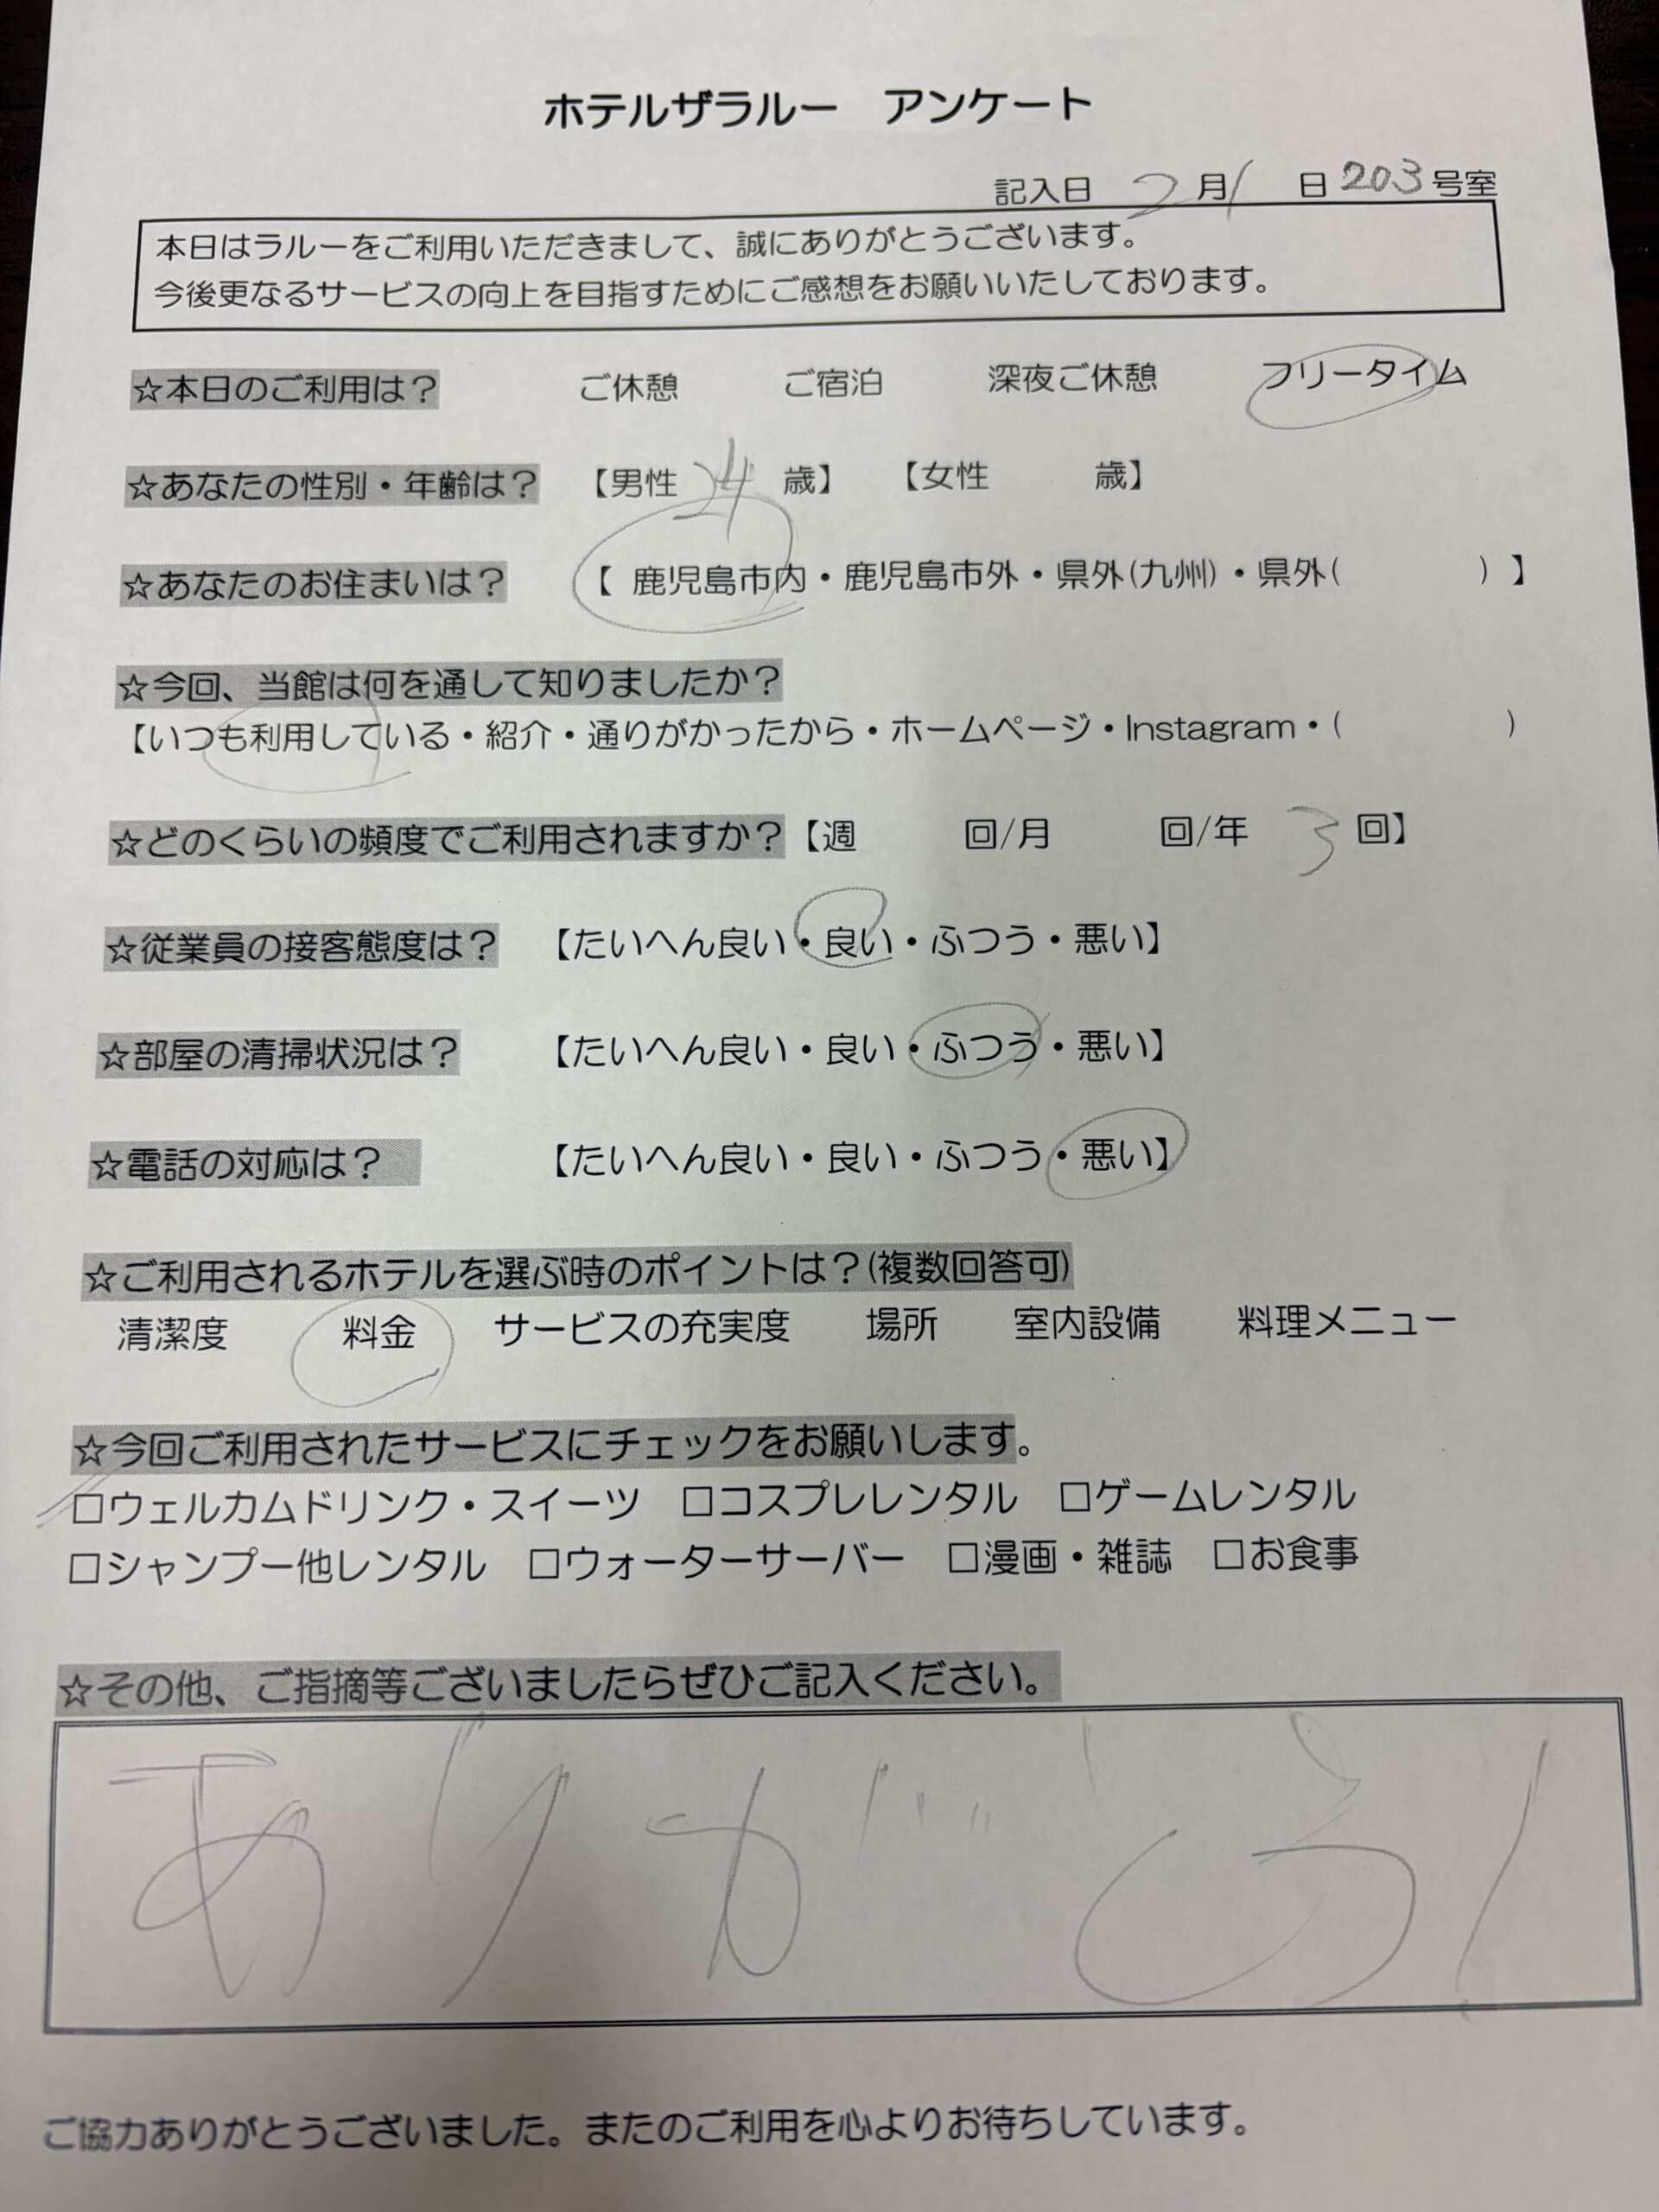 ホテルザラルー　アンケート
記入日 2月1日 203号室
本日はラルーをご利用いただきまして、誠にありがとうございます。
今後更なるサービスの向上を目指すためにご感想をお願いいたしております。
☆本日のご利用は？ ご休憩 ご宿泊 深夜ご休憩 フリータイム
☆あなたの性別・年齢は？ 【男性 24 歳】 【女性 歳】
☆あなたのお住まいは？ 【 鹿児島市内・鹿児島市外・県外(九州)・県外( ) 】
☆今回、当館は何を通して知りましたか？
【いつも利用している・紹介・通りがかったから・ホームページ・Instagram・( )
☆どのくらいの頻度でご利用されますか？【週 回/月 回/年 3 回】
☆従業員の接客態度は？ 【たいへん良い・良い・ふつう・悪い】
☆部屋の清掃状況は？ 【たいへん良い・良い・ふつう・悪い】
☆電話の対応は？ 【たいへん良い・良い・ふつう・悪い】
☆ご利用されるホテルを選ぶ時のポイントは？(複数回答可)
清潔度 料金 サービスの充実度 場所 室内設備 料理メニュー
☆今回ご利用されたサービスにチェックをお願いします。
□ウェルカムドリンク・スイーツ □コスプレレンタル □ゲームレンタル
□シャンプー他レンタル □ウォーターサーバー □漫画・雑誌 □お食事
☆その他、ご指摘等ございましたらぜひご記入ください。
ありがとう!
ご協力ありがとうございました。またのご利用を心よりお待ちしています。